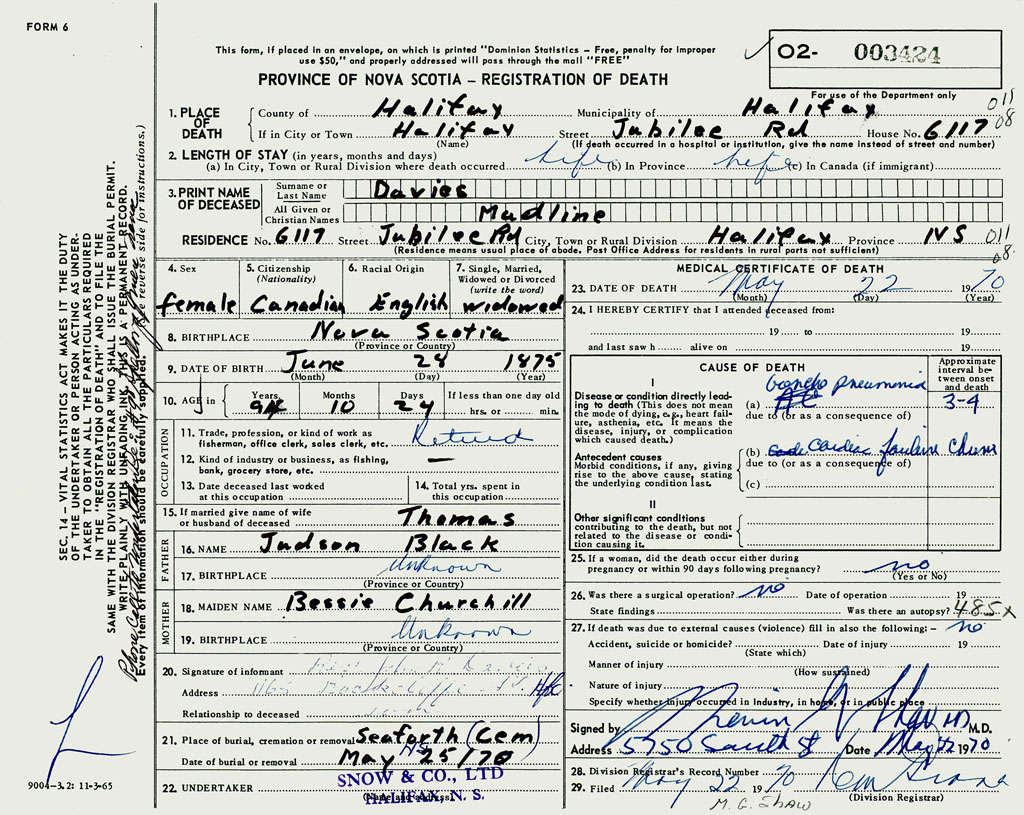 FORM 6
This form, if placed in an envelope, on which is printed "Dominion Statistics – Free, penalty for improper
use $50," and properly addressed will pass through the mail "FREE"
PROVINCE OF NOVA SCOTIA – REGISTRATION OF DEATH
02- 003424
For use of the Department only
011
08
1. PLACE OF DEATH
County of Halifax Municipality of Halifax
If in City or Town Halifax Street Jubilee Rd House No. 6117
(Name) (If death occurred in a hospital or institution, give the name instead of street and number)
2. LENGTH OF STAY (in years, months and days)
(a) In City, Town or Rural Division where death occurred life (b) In Province life (c) In Canada (if immigrant)
3. PRINT NAME OF DECEASED
Surname or Last Name Davies
All Given or Christian Names Madline
RESIDENCE No. 6117 Street Jubilee Rd City, Town or Rural Division Halifax Province NS 011
(Residence means usual place of abode. Post Office Address for residents in rural parts not sufficient) 08
4. Sex female
5. Citizenship (Nationality) Canadian
6. Racial Origin English
7. Single, Married, Widowed or Divorced (write the word) widowed
8. BIRTHPLACE Nova Scotia
(Province or Country)
9. DATE OF BIRTH June 28 1875
(Month) (Day) (Year)
10. AGE in Years 94 Months 10 Days 24 If less than one day old hrs. or min.
OCCUPATION
11. Trade, profession or kind of work as
fishermen, office clerk, sales clerk, etc. Retired
12. Kind of industry or business, as fishing,
bank, grocery store, etc. —
13. Date deceased last worked
at this occupation
14. Total yrs. spent in
this occupation
15. If married give name of wife
or husband of deceased Thomas
FATHER
16. NAME Judson Black
17. BIRTHPLACE Unknown
(Province or Country)
MOTHER
18. MAIDEN NAME Bessie Churchill
19. BIRTHPLACE Unknown
(Province or Country)
20. Signature of informant
Address Hfx
Relationship to deceased
21. Place of burial, cremation or removal Seaforth (Cem)
NS
Date of burial or removal May 25/70
22. UNDERTAKER SNOW & CO., LTD
(Name and address)
HALIFAX, N. S.
MEDICAL CERTIFICATE OF DEATH
23. DATE OF DEATH May 22 1970
(Month) (Day) (Year)
24. I HEREBY CERTIFY that I attended deceased from:
19 to 19
and last saw h alive on 19
CAUSE OF DEATH
Approximate interval between onset and death
I
Disease or condition directly leading
to death (This does not mean
the mode of dying, e.g., heart failure,
asthenia, etc. It means the
disease, injury, or complication
which caused death.)
(a) broncho pneumonia 3-4
due to (or as a consequence of)
Antecedent causes
Morbid conditions, if any, giving
rise to the above cause, stating
the underlying condition last.
(b) Cardiac failure
due to (or as a consequence of)
(c)
II
Other significant conditions
contributing to the death, but not
related to the disease or condition
causing it.
25. If a woman, did the death occur either during
pregnancy or within 90 days following pregnancy? no
(Yes or No)
26. Was there a surgical operation? no Date of operation 19
State findings Was there an autopsy? 485X
27. If death was due to external causes (violence) fill in also the following: – no
Accident, suicide or homicide? Date of injury 19
(State which)
Manner of injury
(How sustained)
Nature of injury
Specify whether injury occurred in industry, in home, or in public place
Signed by M.D.
Address 5950 South St Date May 22 1970
28. Division Registrar's Record Number
29. Filed May 22 1970
(Division Registrar)
M. G. SHAW
SEC. 14 – VITAL STATISTICS ACT MAKES IT THE DUTY
OF THE UNDERTAKER OR PERSON ACTING AS UNDERTAKER
TO OBTAIN ALL THE PARTICULARS REQUIRED
IN THE "REGISTRATION OF DEATH" AND TO FILE THE
SAME WITH THE DIVISION REGISTRAR WHO SHALL ISSUE THE BURIAL PERMIT.
WRITE PLAINLY WITH UNFADING INK. THIS IS A PERMANENT RECORD.
Every item of information should be carefully supplied. (See reverse side for instructions.)
9004-3.2: 11-3-65